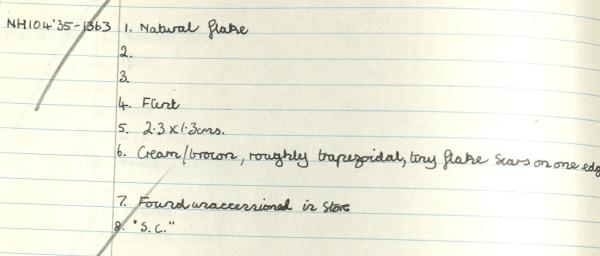 NH104'35-1363 1. Natural flake
2.
3.
4. Flint
5. 2·3 x 1·3cms.
6. Cream/brown, roughly trapezoidal, tiny flake scars on one edge
7. Found unaccessioned in store
8. "S.C."